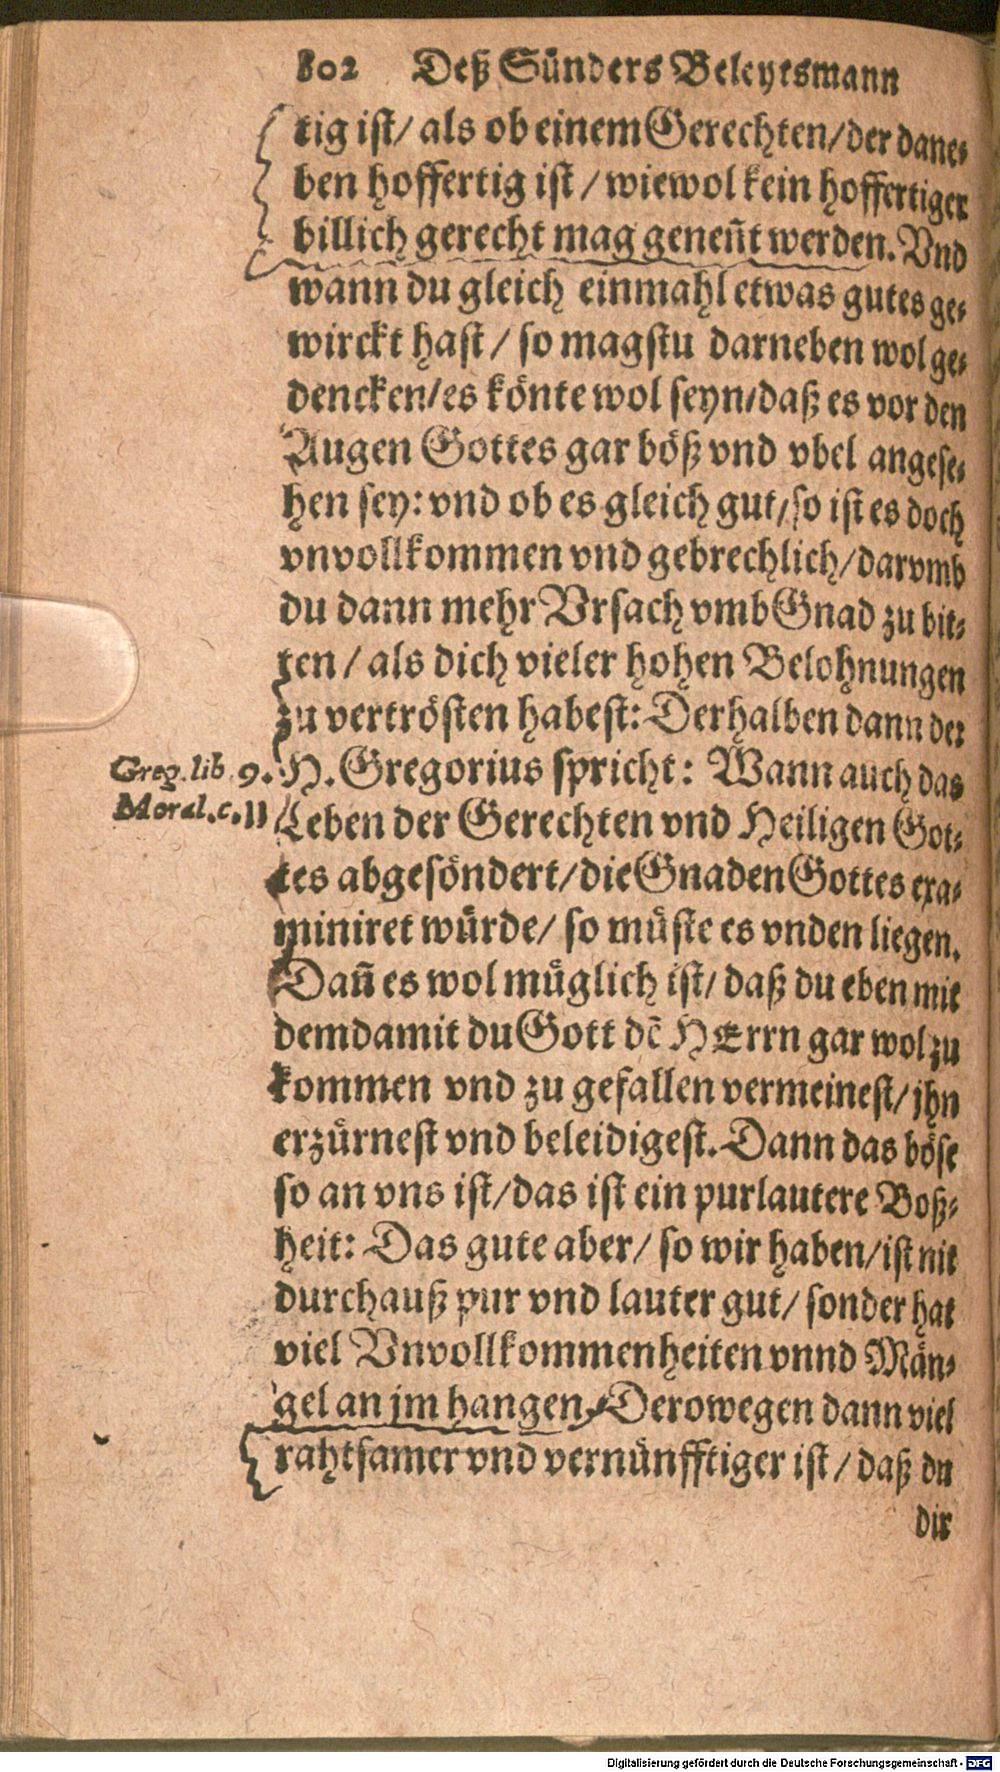 802 Deß Sünders Beleytesmann
tig ist/ als ob einem Gerechten/ der dane-
ben hoffertig ist / wiewol kein hoffertiger
billich gerecht mag geneñt werden. Vnd
wann du gleich einmahl etwas gutes ge-
wirckt hast / so magstu darneben wol ge-
dencken/ es könte wol seyn/ daß es vor den
Augen Gottes gar böß vnd vbel angese-
hen sey: vnd ob es gleich gut/ so ist es doch
vnvollkommen vnd gebrechlich/ darvmb
du dann mehr Vrsach vmb Gnad zu bit-
ten / als dich vieler hohen Belohnungen
zu vertrösten habest: Derhalben dann der
Greg. lib. 9. H. Gregorius spricht: Wann auch das
Moral. c. 11 Leben der Gerechten vnd Heiligen Got-
tes abgesöndert/ die Gnaden Gottes exa-
miniret würde/ so müste es vnden liegen.
Dañ es wol müglich ist/ daß du eben mit
dem damit du Gott dē HErrn gar wol zu
kommen vnd zu gefallen vermeinest/ jhn
erzürnest vnd beleidigest. Dann das böse
so an vns ist/ das ist ein purlautere Boß-
heit: Das gute aber/ so wir haben/ ist nit
durchauß pur vnd lauter gut/ sonder hat
viel Vnvollkommenheiten vnnd Män-
gel an jm hangen. Derowegen dann viel
rahtsamer vnd vernünfftiger ist / daß du
dir
Digitalisierung gefördert durch die Deutsche Forschungsgemeinschaft - DFG